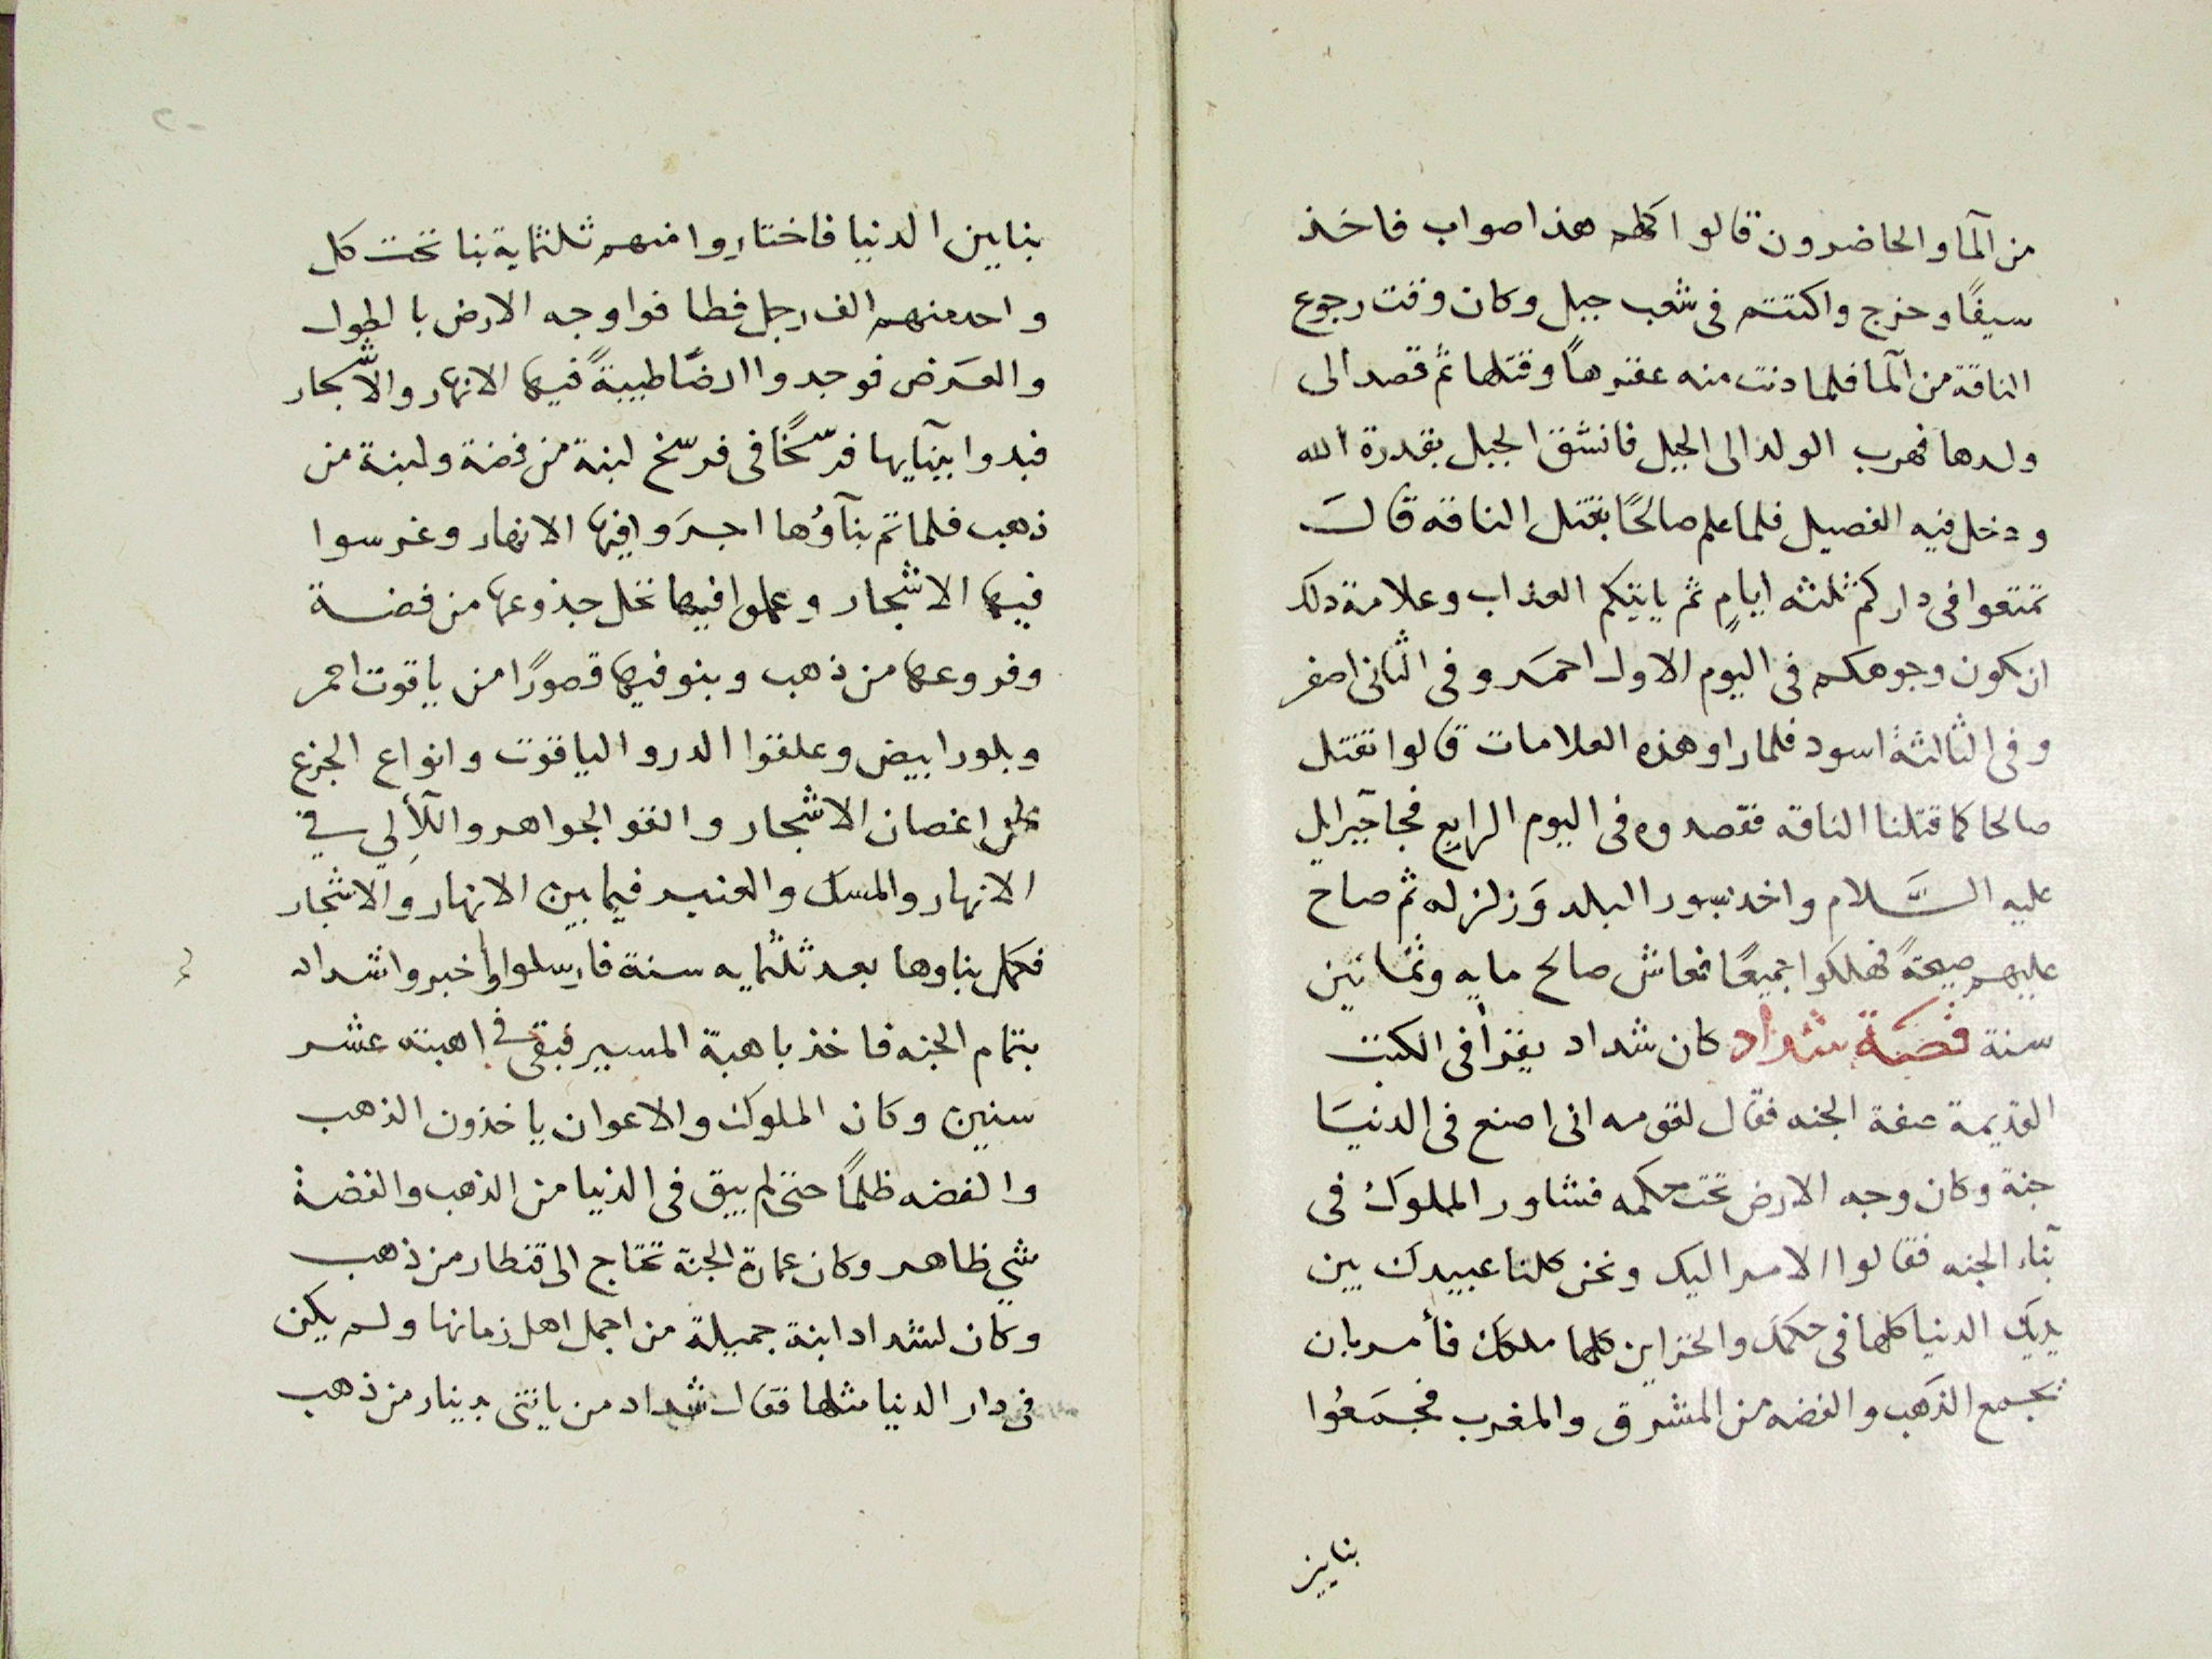 من المآ والحاضرون قالوا كلهم هذا صواب فاخذ
سيفًا وخرج واكتتم فى شعب جبل وكان وقت رجوع
الناقة من المآ فلما دنت منه عقرهاً وقتلها ثم قصد الى
ولدها فهرب الولد الى الجبل فانشق الجبل بقدرة الله
ودخل فيه الفصيل فلما علم صالحًا بقتل الناقه قال
تمتعوا فى داركم ثلثه ايامٍ ثم ياتيكم العذاب وعلامة ذلك
ان يكون وجوهكم فى اليوم الاول احمر وفى الثانى اصفر
وفى الثالثة اسود فلما راو هذه العلامات قالوا نقتل
صالحا كما قتلنا الناقه فقصدوه فى اليوم الرابع فجآ جبرايل
عليه السَّلام واخذ بسور البلد وَزلزله ثم صاح
عليهم صيحةً فهلكوا جميعًا فعاش صالح مايه وثمانين
سنة قصّة شداد كان شداد يقرأ فى الكتب
القديمة صفة الجنه فقال لقومه انى اصنع فى الدنيَا
جنة وكان وجه الارض تحت حكمه فشاور الملوك فى
بناء الجنه فقالوا الامر اليك ونحن كلنا عبيدك بين
يديك الدنيا كلها فى حكمك والخزاين كلها ملكك فأمر بان
يجمع الذهَب والفضه من المشرق والمغرب فجمَعُوا
بنايين
بنايين الدنيا فاختاروا منهم ثلثماية بنا تحت كل
واحد منهم الف رجل فطافوا وجه الارض بالطول
والعَرض فوجدوا ارضًا طيبةً فيها الانهار والاشجار
فبدوا ببنآيها فرسخًا فى فرسخ لبنة من فضة ولبنة من
ذهب فلما تم بنآؤها اجرَوا فيها الانهار وغرسوا
فيها الاشجار وعملوا فيها نخل جذوعها من فضة
وفروعها من ذهب وبنو فيها قصورًا من ياقوت احمر
وبلور ابيض وعلقوا الدر والياقوت وانواع الجزع
على اغصان الاشجار والقو الجواهر واللآلي في
الانهار والمسك والعنبر فيما بين الانهار والاشجار
فكمل بناوها بعد ثلثمايه سنة فارسلوا واخبروا شداد
بتمام الجنه فاخذ باهبة المسير فبقى فى اهبته عشر
سنين وكان الملوك والاعوان ياخذون الذهب
والفضه ظلمًا حتى لم يبق فى الدنيا من الذهب والفضة
شي ظاهر وكان عمارة الجنة تحتاج الى قنطار من ذهب
وكان لشداد ابنة جميلة من اجمل اهل زمانها ولم يكن
فى دار الدنيا مثلها فقال شداد من ياتنى بدينار من ذهب